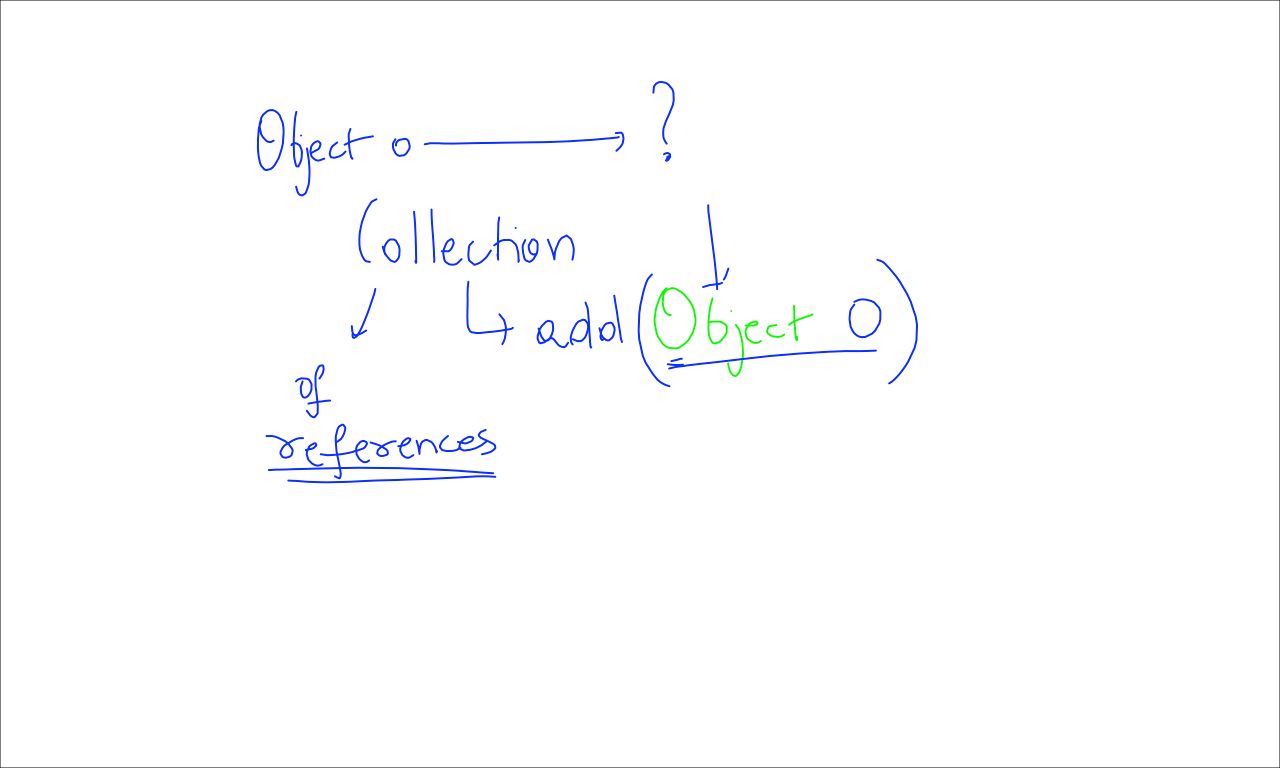 Object o ?
Collection
add(Object O)
of
references